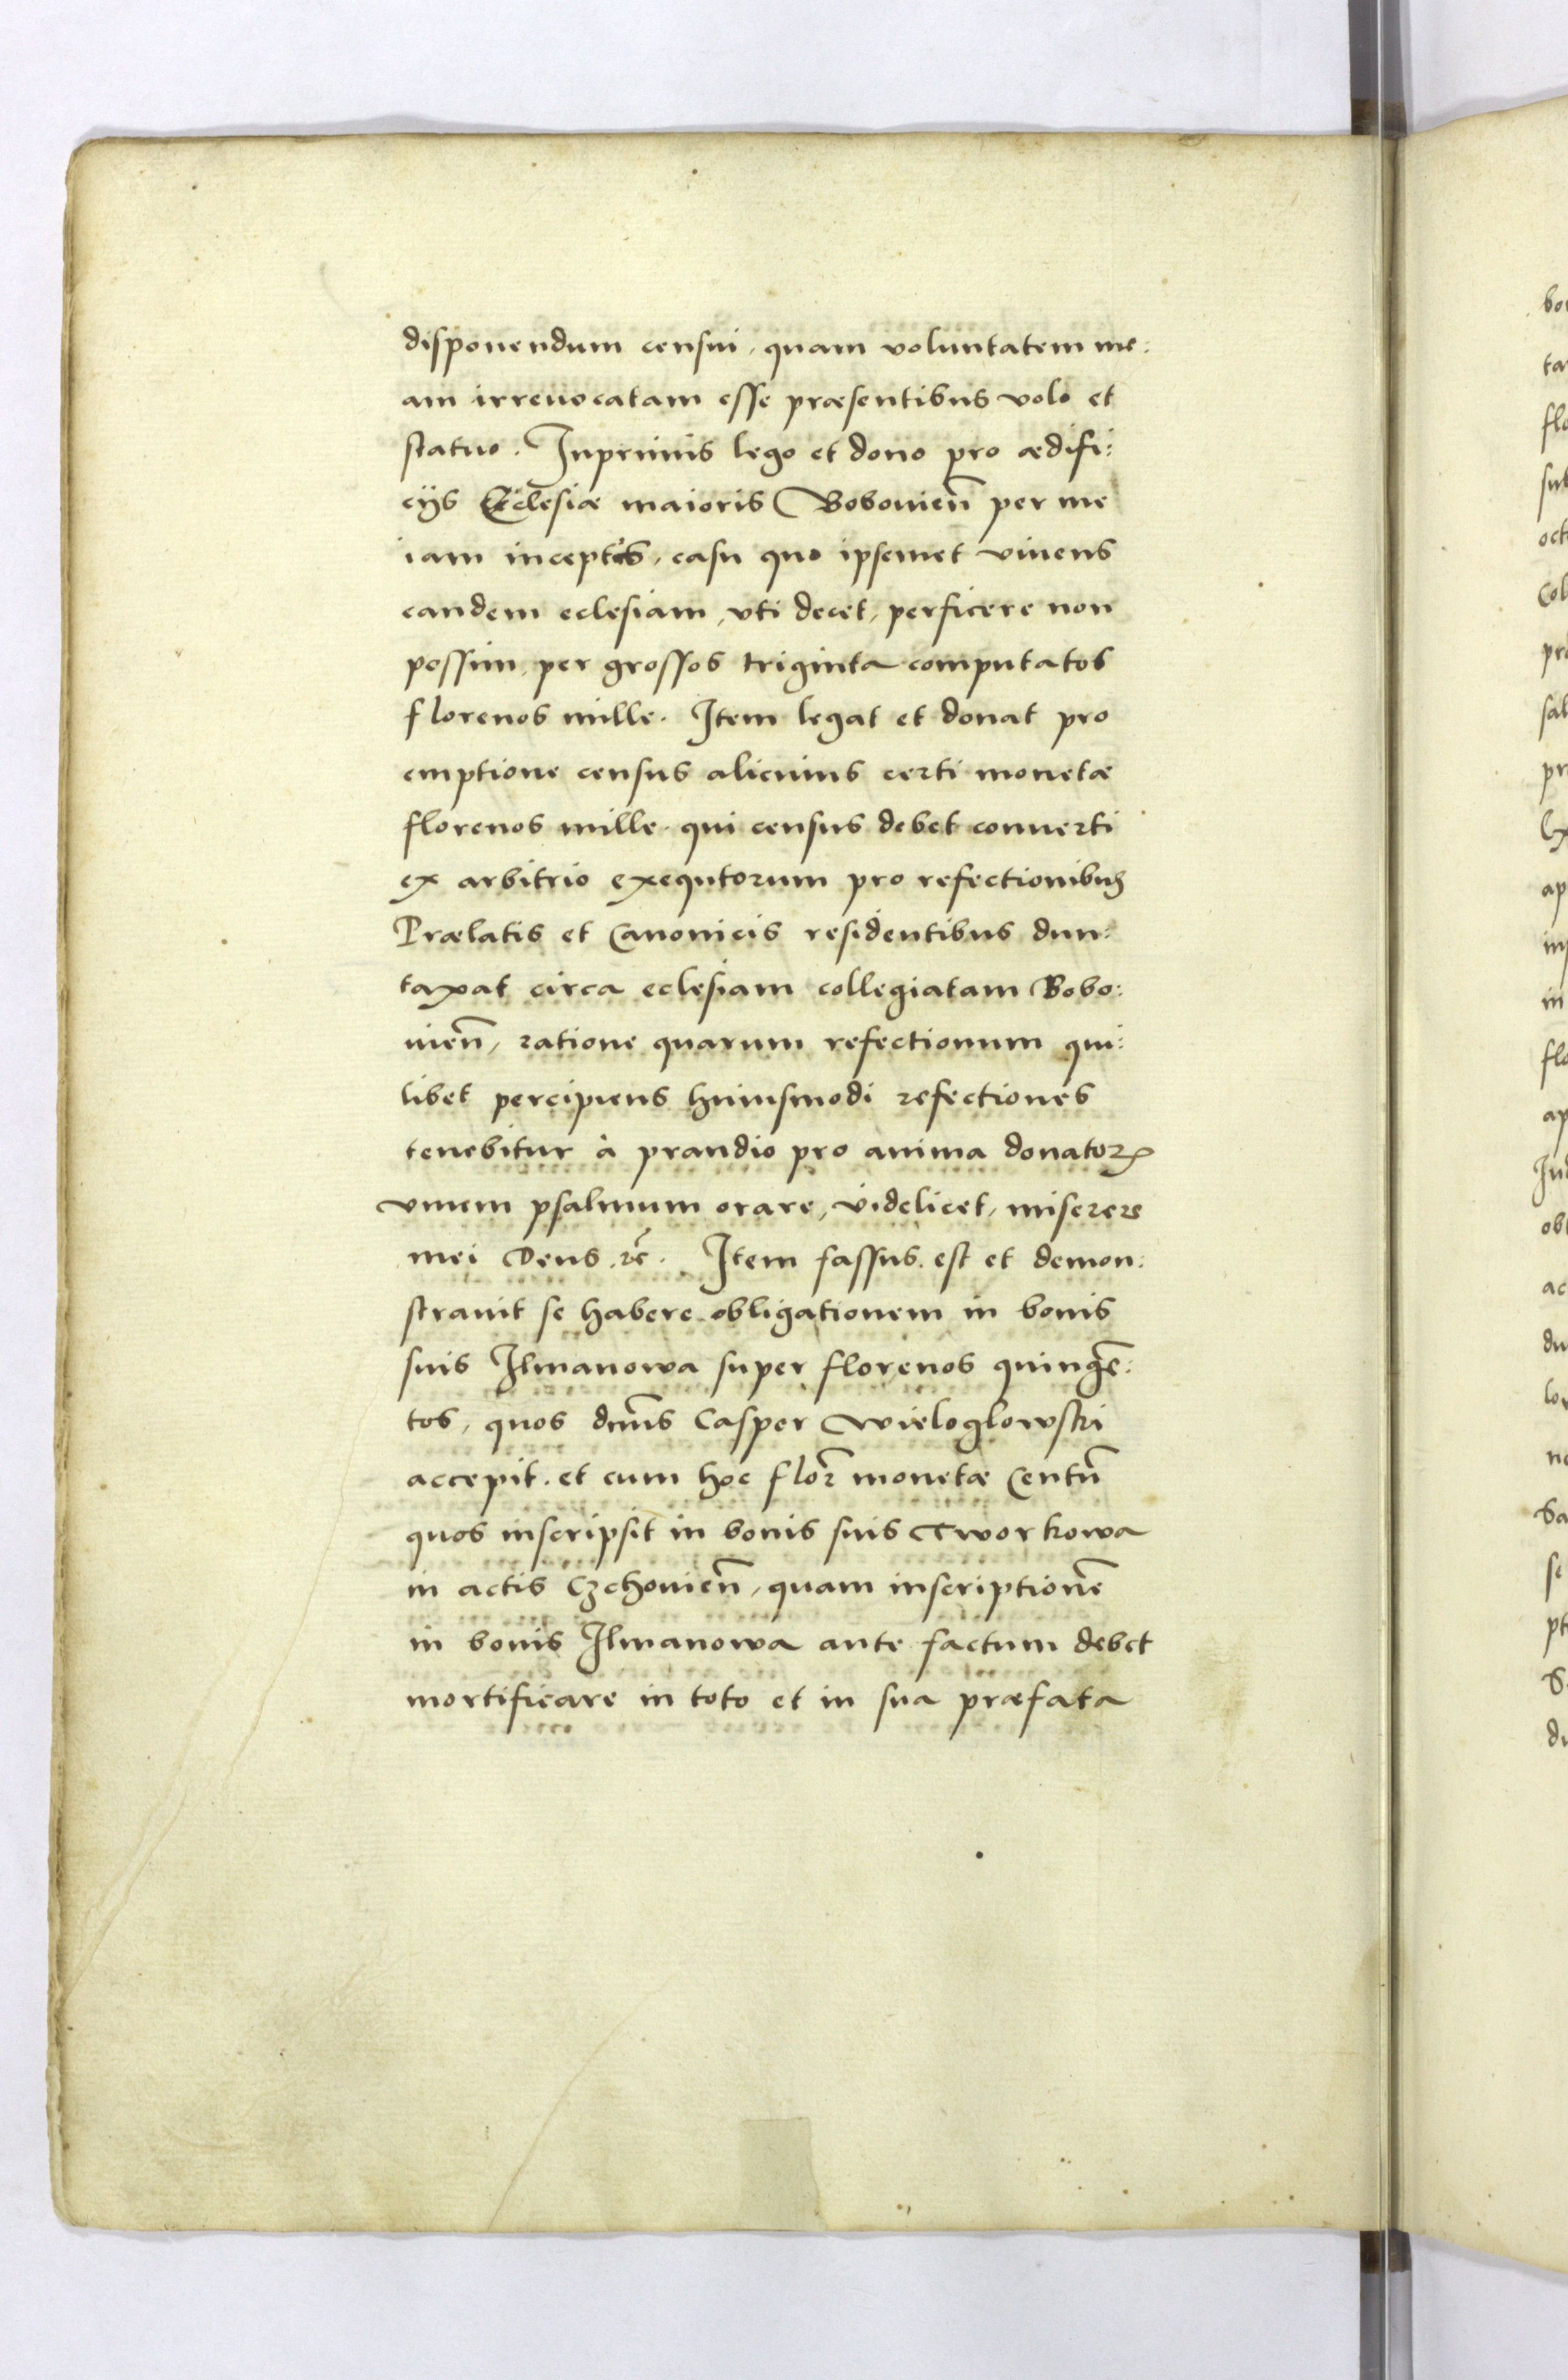 disponendum censui, quam voluntatem me:
am irreuocatam esse præsentibus volo et
statuo. Inprimis lego et dono pro ædifi:
cijs Ecclesiæ maioris Bobouien̄ per me
iam inceptis, casu quo ipsemet viuens
eandem eclesiam, vti decet, perficere non
possim, per grossos triginta computatos
florenos mille. Item legat et donat pro
emptione census alicuius certi monetæ
florenos mille, qui census debet conuerti
ex arbitrio exequtorum pro refectionibus
Prælatis et Canonicis residentibus dun:
taxat circa eclesiam collegiatam Bobo:
uien̄, ratione quarum refectionum qui:
libet percipiens huiusmodi refectiones
tenebitur à prandio pro anima donatorꝝ
vnum psalmum orare, videlicet, miserere
mei Deus. ꝛc̄. Item fassus est et demon:
strauit se habere obligationem in bonis
suis Ilmanowa super florenos quingē:
tos, quos dn̄us Casper Wieloglowski
accepit. et cum hoc flor̄ monetæ Centū
quos inscripsit in bonis suis Tworkowa
in actis Czchouien̄, quam inscriptionē
in bonis Ilmanowa ante factum debet
mortificare in toto et in sua præfata
bo
ta
flo
sub
oct
Col
pro
sal
pr
ap
in
flo
ap
ob
ac
du
ne
se
pt
du